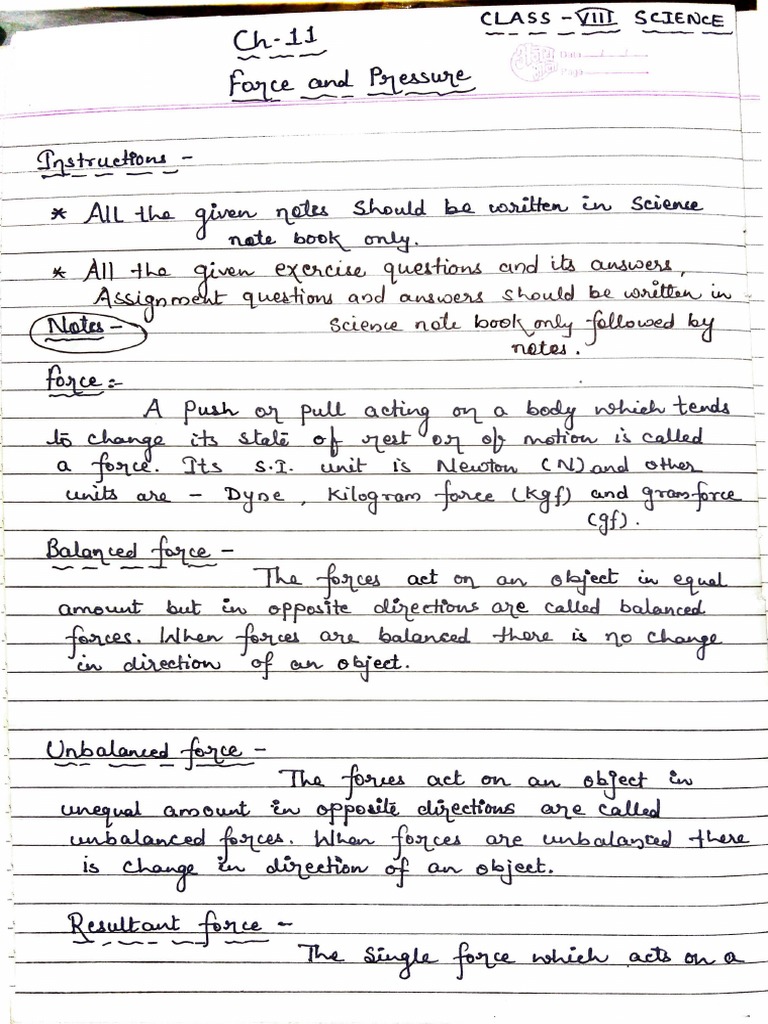 CLASS - VIII SCIENCE
Ch-11
Force and Pressure
Date
Page
Instructions -
* All the given notes should be written in Science
note book only.
* All the given exercise questions and its answers,
Assignment questions and answers should be written in
Science note book only followed by
notes.
Notes -
Force :-
A push or pull acting on a body which tends
to change its state of rest or of motion is called
a force. Its S.I. unit is Newton (N) and other
units are - Dyne, Kilogram force (Kgf) and gramforce
(gf).
Balanced force -
The forces act on an object in equal
amount but in opposite directions are called balanced
forces. When forces are balanced there is no change
in direction of an object.
Unbalanced force -
The forces act on an object in
unequal amount in opposite directions are called
unbalanced forces. When forces are unbalanced there
is change in direction of an object.
Resultant force -
The Single force which acts on a